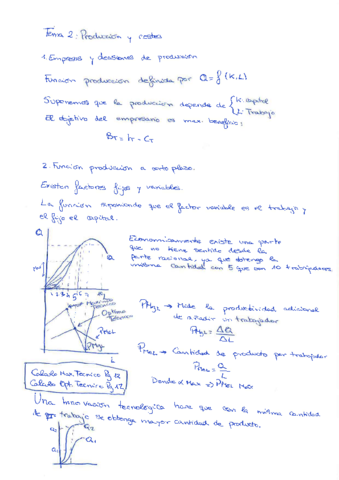 Tema 2: Producción y costes
1. Empresas y decisiones de producción
Función producción definida por Q = f (K,L)
Suponemos que la producción depende de { K capital
L Trabajo
El objetivo del empresario es max beneficio:
BT = IT - CT
2. Función producción a corto plazo.
Existen factores fijos y variables.
La función suponiendo que el factor variable es el trabajo y
el fijo el capital.
Q
Economicamente existe una parte
que no tiene sentido desde la
parte racional, ya que obtengo la
misma cantidad con 5 que con 10 trabajadores
Q
1 2 3 4 5 6
L
PMgL → Mide la productividad adicional
de añadir un trabajador
PMgL = ΔQ / ΔL
Óptimo
Técnico
PMeL
PMgL
L
PMeL → Cantidad de producto por trabajador
PMeL = Q / L
Donde α Max ⇒ PMeL Max
Cálculo Max Técnico Pg 12
Cálculo Opt. Técnico Pg 12
Una innovación tecnológica hace que con la misma cantidad
de trabajo se obtenga mayor cantidad de producto.
Q2
Q1